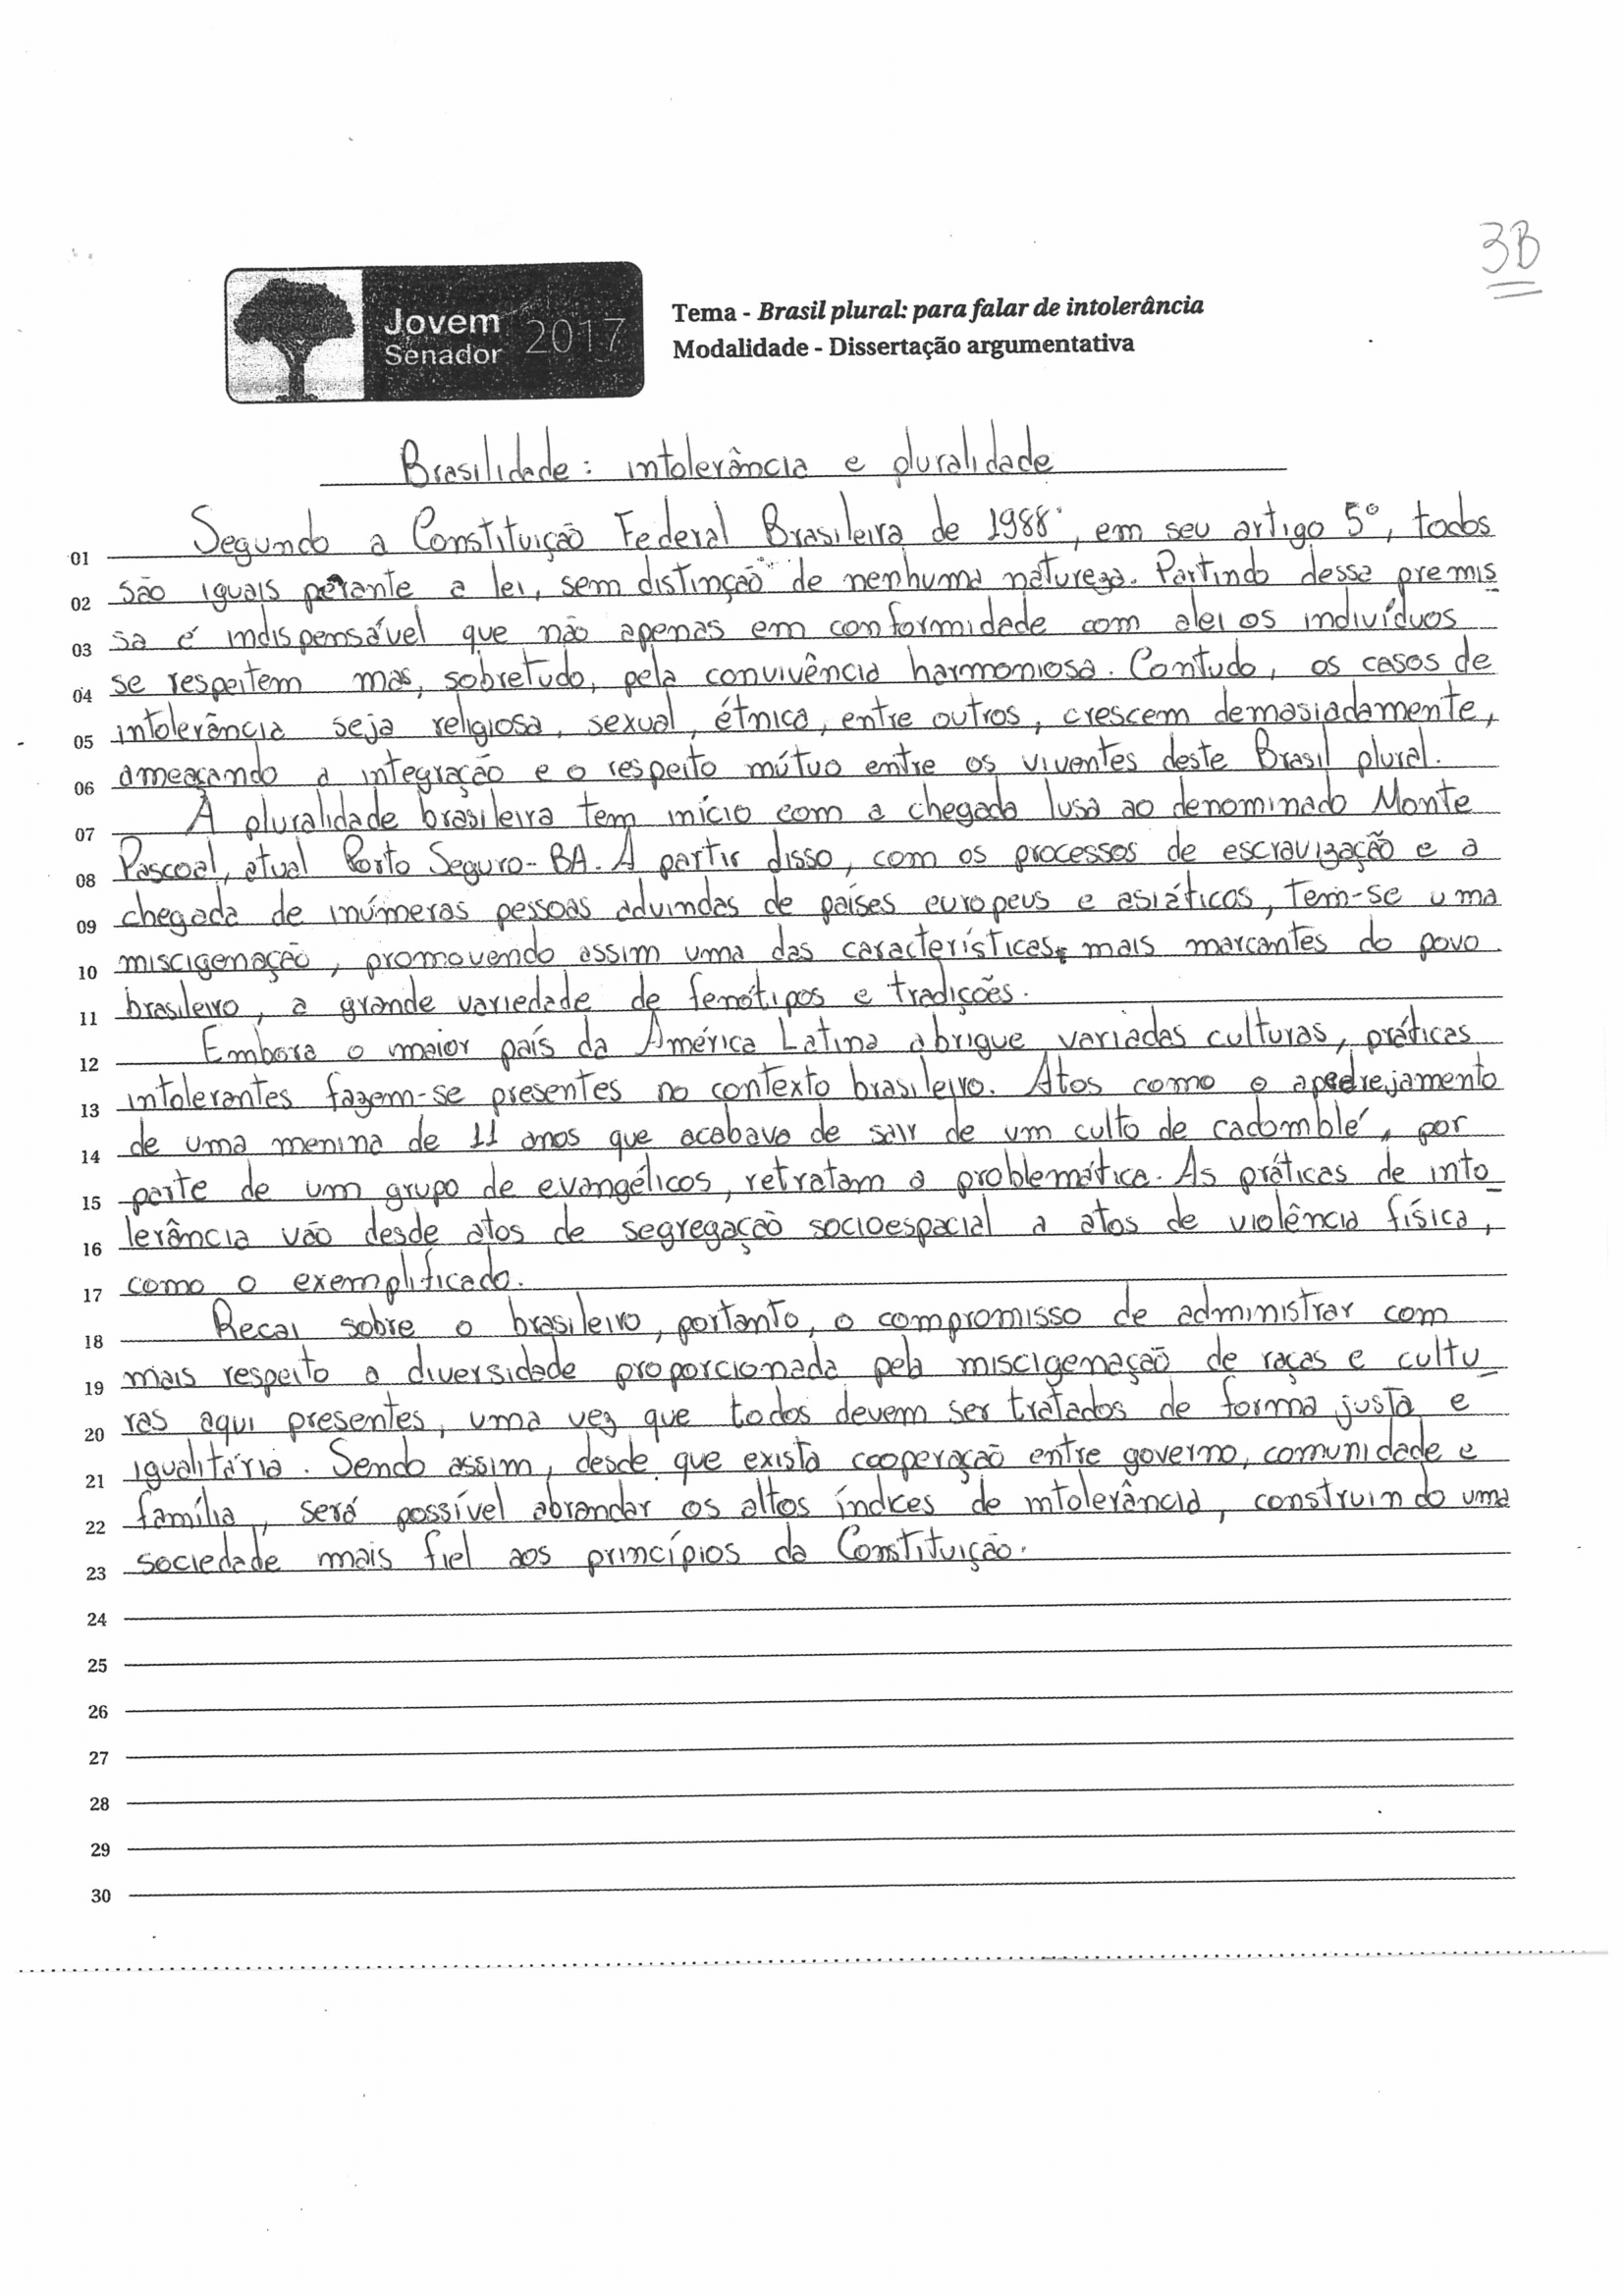 3B
Jovem
Senador 2017
Tema - Brasil plural: para falar de intolerância
Modalidade - Dissertação argumentativa
Brasilidade: intolerância e pluralidade
01 Segundo a Constituição Federal Brasileira de 1988, em seu artigo 5º, todos
02 são iguais perante a lei, sem distinção de nenhuma natureza. Partindo dessa premis
03 sa é indispensável que não apenas em conformidade com a lei os indivíduos
04 se respeitem mas, sobretudo, pela convivência harmoniosa. Contudo, os casos de
05 intolerância seja religiosa, sexual, étnica, entre outros, crescem demasiadamente,
06 ameaçando a integração e o respeito mútuo entre os viventes deste Brasil plural.
07 A pluralidade brasileira tem início com a chegada lusa ao denominado Monte
08 Pascoal, atual Porto Seguro-BA. A partir disso, com os processos de escravização e a
09 chegada de inúmeras pessoas advindas de países europeus e asiáticos, tem-se uma
10 miscigenação, promovendo assim uma das características mais marcantes do povo
11 brasileiro, a grande variedade de fenótipos e tradições.
12 Embora o maior país da América Latina abrigue variadas culturas, práticas
13 intolerantes fazem-se presentes no contexto brasileiro. Atos como o apedrejamento
14 de uma menina de 11 anos que acabava de sair de um culto de cadomblé, por
15 parte de um grupo de evangélicos, retratam a problemática. As práticas de into
16 lerância vão desde atos de segregação socioespacial a atos de violência física,
17 como o exemplificado.
18 Recai sobre o brasileiro, portanto, o compromisso de administrar com
19 mais respeito a diversidade proporcionada pela miscigenação de raças e cultu
20 ras aqui presentes, uma vez que todos devem ser tratados de forma justa e
21 igualitária. Sendo assim, desde que exista cooperação entre governo, comunidade e
22 família, será possível abrandar os altos índices de intolerância, construindo uma
23 sociedade mais fiel aos princípios da Constituição.
24
25
26
27
28
29
30